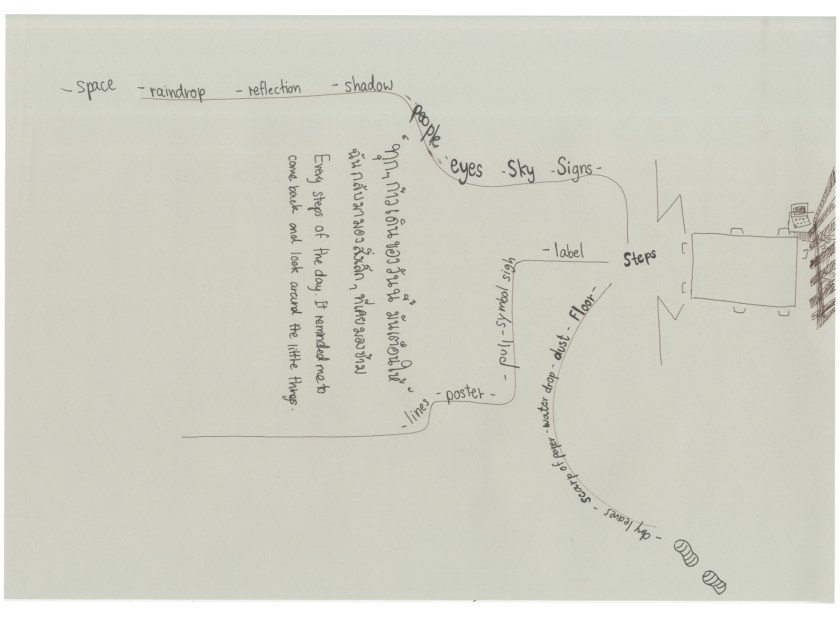 - space - raindrop - reflection - shadow - people - eyes - Sky - Signs -
Steps
- label
sign - symbol - pull -
- poster -
- lines
Floor - dust - water drop - scarp of paper - dry leaves -
" ทุกๆ ก้าวเดินของวันนี้ มันเตือนให้ "
ฉันกลับมามองสิ่งเล็กๆ ที่เคยมองข้าม
Every steps of the day. It reminded me to
come back and look around the little things.